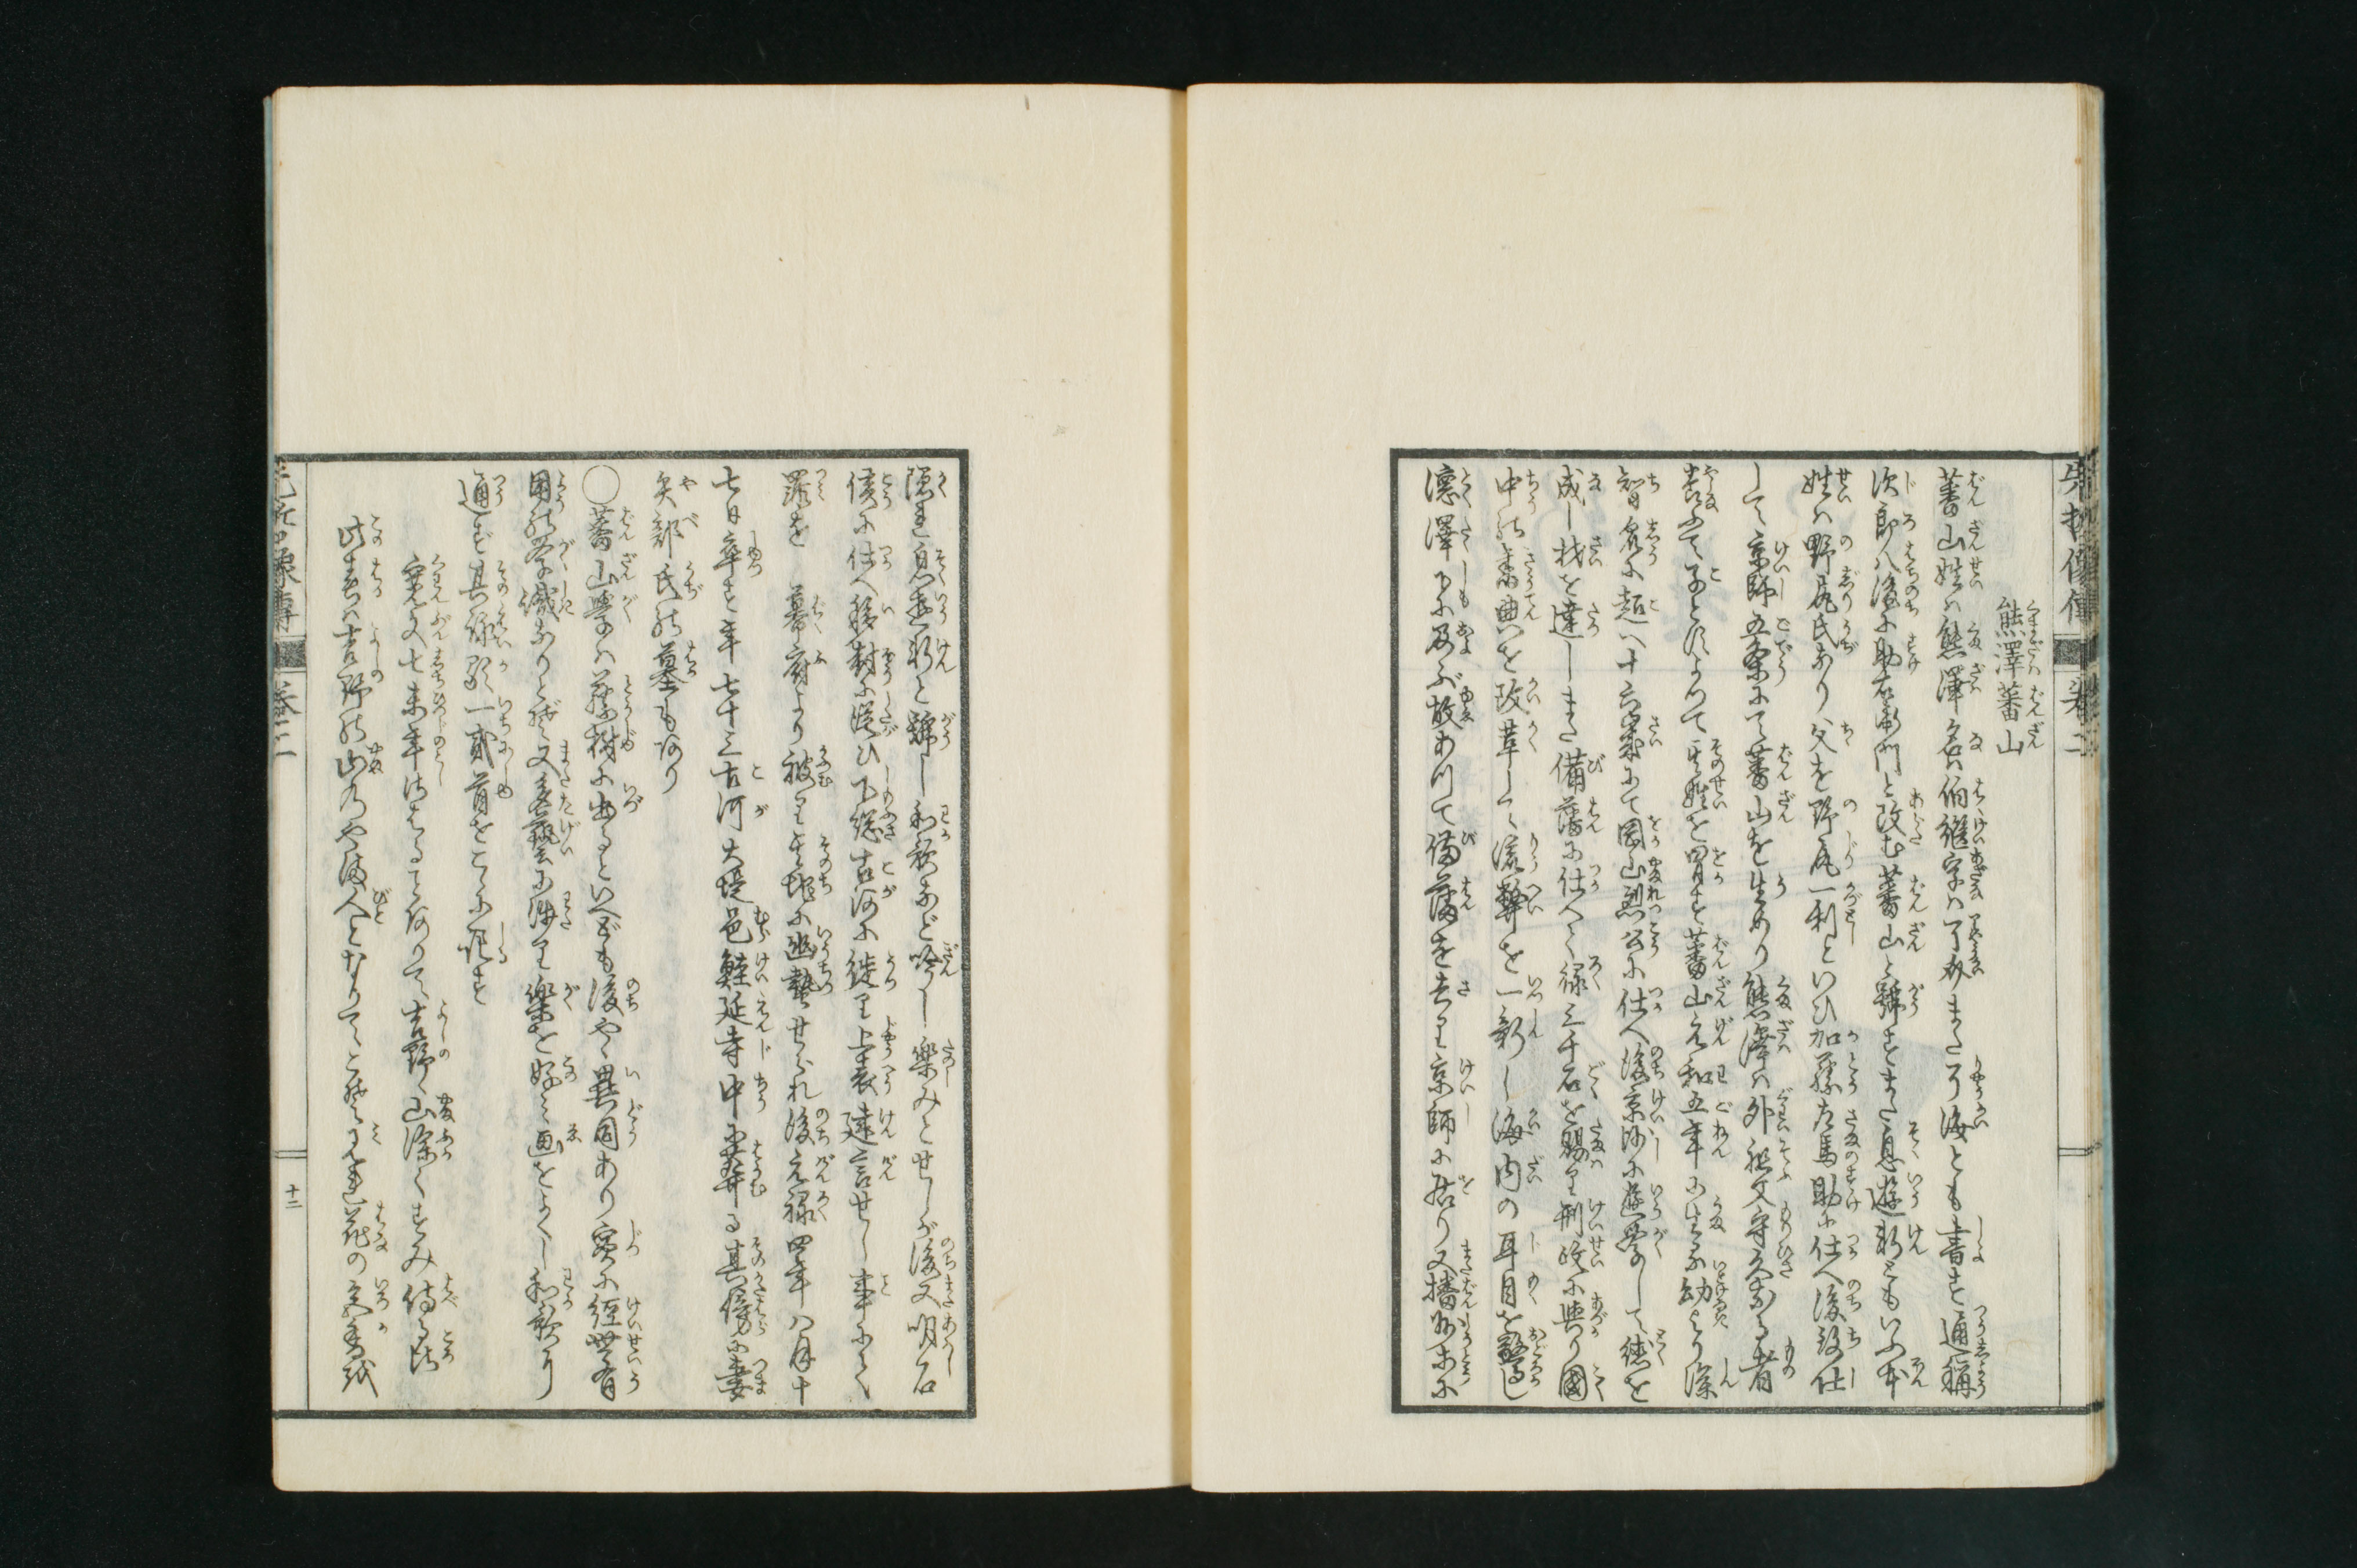 先哲像傳 卷二
熊澤蕃山
蕃山姓ハ熊澤名ハ伯繼字ハ了介また了海とも書す通稱
次郎八後に助右衛門と改む蕃山と號すまた息遊軒ともいふ本
姓ハ野尻氏なり父を野尻一利といひ加藤左馬助に仕へ後致仕
して京師五条にて蕃山を生めり熊澤ハ外祖父守久なる者
養ふて子とすよつて其姓を冒す蕃山元和五年に生る幼より深
智衆に超へ十六歳にて岡山烈公に仕へ後京師に遊學して徳を
成し材を達しまた備藩に仕へて禄三千石を賜り刑政に與り國
中の喪典を改革して流弊を一新し海内の耳目を驚し
德澤下に及ぶ故あつて備藩を去り京師に居り又播州赤に
隠れ息遊軒と號し和歌など吟し樂みとせしが後又明石
侯に仕へ移封に從ひ下總古河に徙り上表建言せし事にて
罪を 幕府より被り其地に幽蟄せられ後元禄四年八月十
七日卒す年七十三古河大堤邑鮭延寺中に葬る其傍に妻
矢部氏の墓もあり
○蕃山學ハ藤樹に出るといへども後やゝ異同あり實に經世有
用の學識なりとぞ又多藝に渉り樂を好み画をよくし和歌に
通ず其詠歌一貳首をこゝに記す
寛文七未年のはる てありて吉野ゝ山深くすみ侍る比
此春ハ吉野の山乃やま人となりてこそみれ花の色香越
先哲像傳 卷二 十二